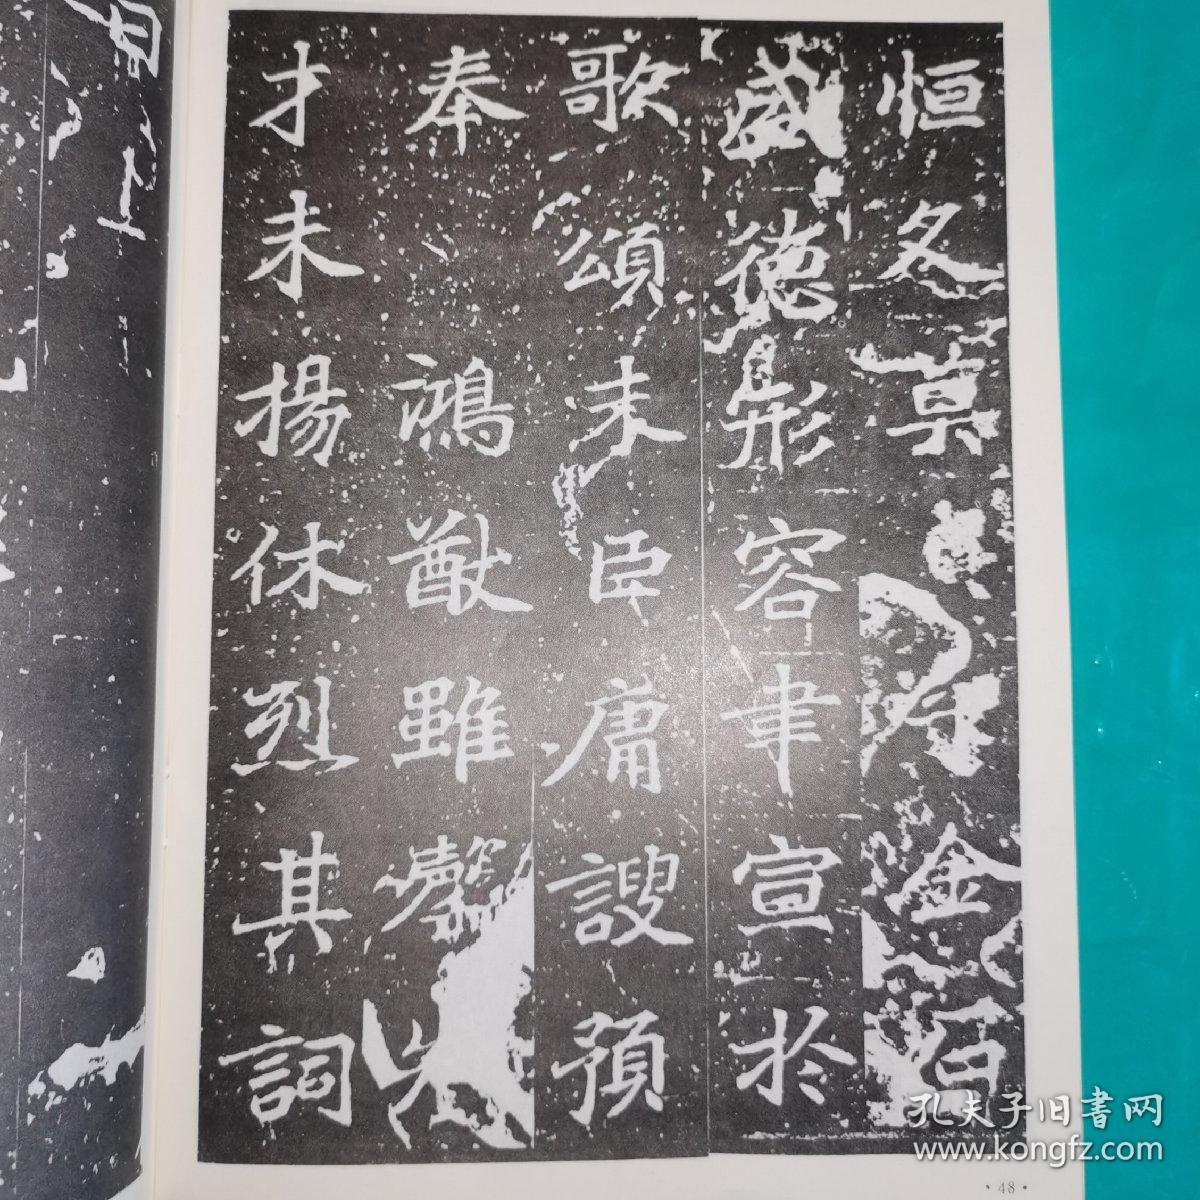 恒久莫金石
盛德形容聿宣於
歌頌末臣庸謏預
奉 鴻猷雖罄
才未揚休烈其詞
上
·48·
孔夫子旧書网
www.kongfz.com